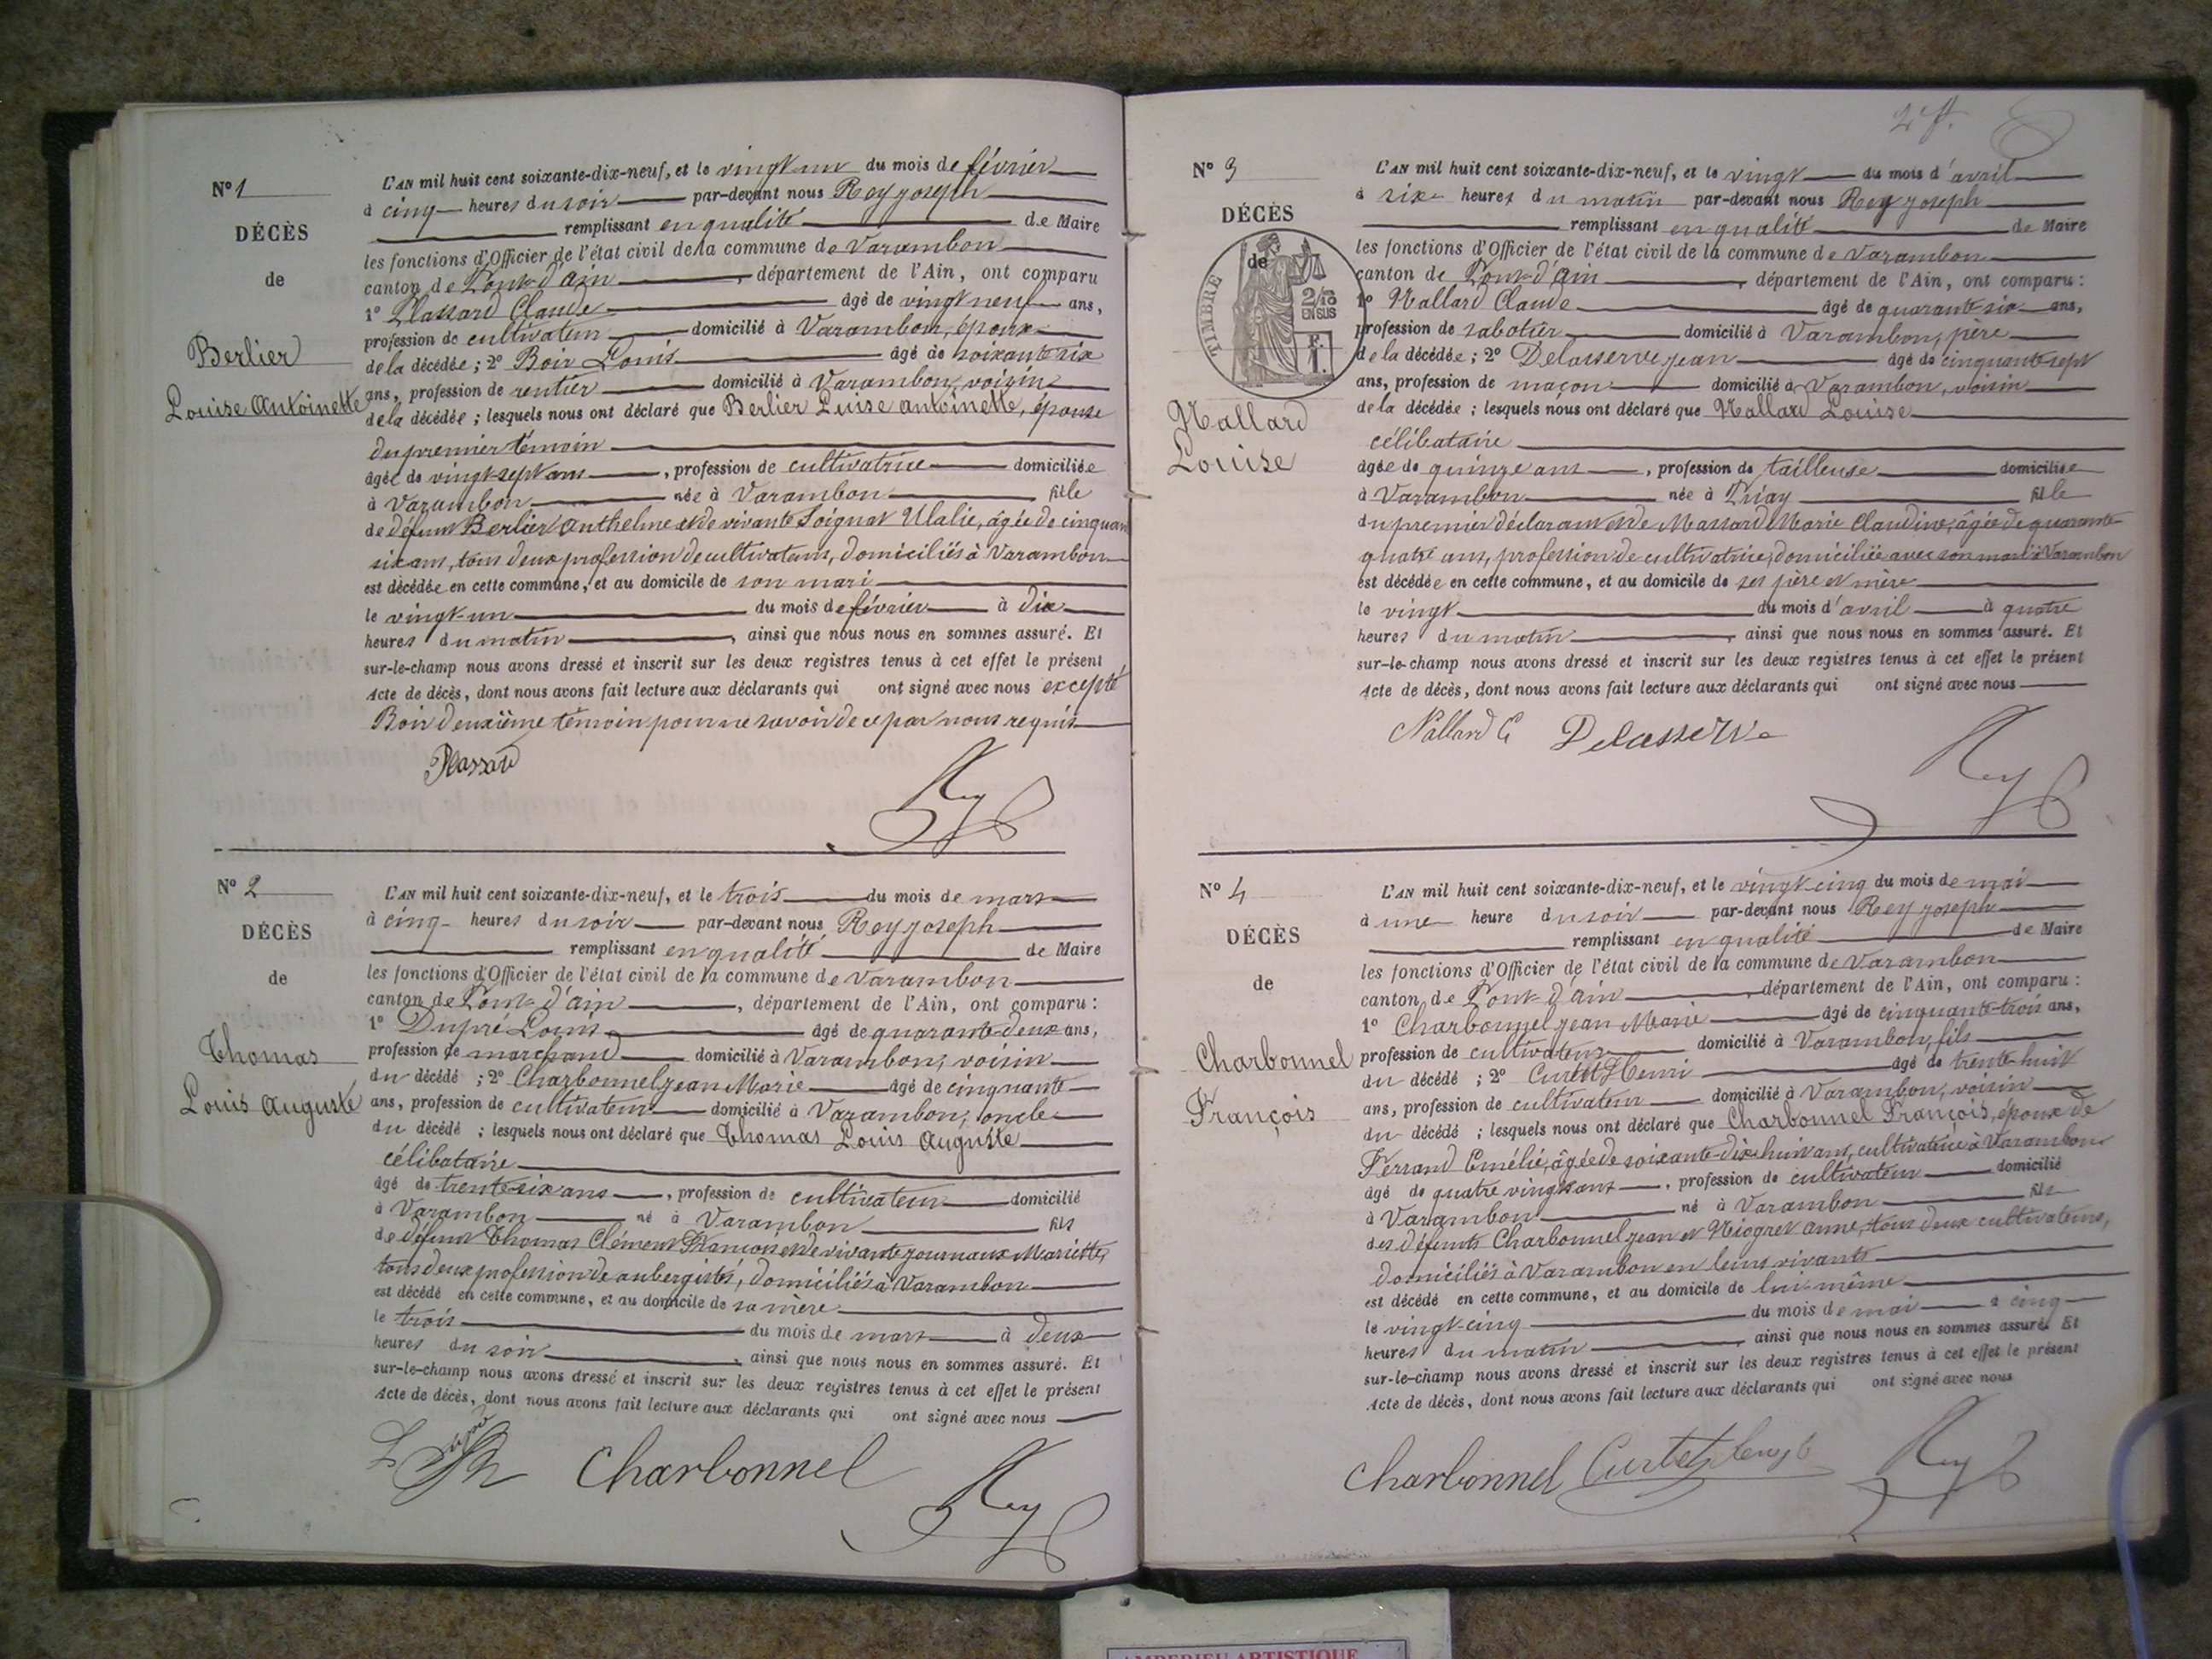 N° 1
DÉCÈS
de
Berlier
Louise Antoinette
L'AN mil huit cent soixante-dix-neuf, et le vingt un du mois de février
à cinq heures du soir par-devant nous Rey joseph
remplissant en qualité de Maire
les fonctions d'Officier de l'état civil de la commune de Varambon
canton de Pont-d'ain, département de l'Ain, ont comparu
1° Plassard Claude âgé de vingt neuf ans,
profession de cultivateur domicilié à Varambon, époux
de la décédée ; 2° Boir Louis âgé de soixante six
ans, profession de rentier domicilié à Varambon, voisin
de la décédée ; lesquels nous ont déclaré que Berlier Luise antoinette, épouse
du premier témoin
âgée de vingt-sept ans, profession de cultivatrice domiciliée
à Varambon née à Varambon fille
de défunt Berlier Anthelme et de vivante Soignat Ulalie, âgée de cinquan
six ans, tous deux profession de cultivateurs, domiciliés à Varambon
est décédée en cette commune, et au domicile de son mari
le vingt-un du mois de février à dix
heures du matin, ainsi que nous nous en sommes assuré. Et
sur-le-champ nous avons dressé et inscrit sur les deux registres tenus à cet effet le présent
Acte de décès, dont nous avons fait lecture aux déclarants qui ont signé avec nous excepté
Boir deuxième témoin pour ne savoir de ce par nous requis
Plassard
Rey
N° 2
DÉCÈS
de
Thomas
Louis Auguste
L'AN mil huit cent soixante-dix-neuf, et le trois du mois de mars
à cinq heures du soir par-devant nous Rey joseph
remplissant en qualité de Maire
les fonctions d'Officier de l'état civil de la commune de Varambon
canton de Pont-d'ain, département de l'Ain, ont comparu :
1° Dupré Louis âgé de quarante-deux ans,
profession de marchand domicilié à Varambon, voisin
du décédé ; 2° Charbonnel jean Marie âgé de cinquante
ans, profession de cultivateur domicilié à Varambon, oncle
du décédé ; lesquels nous ont déclaré que Thomas Louis Auguste
célibataire
âgé de trente-six ans, profession de cultivateur domicilié
à Varambon né à Varambon fils
de défunt Thomas Clément François et de vivante journaux Mariette,
tous deux profession de aubergistes, domiciliés à Varambon
est décédé en cette commune, et au domicile de sa mère
le trois du mois de mars à deux
heures du soir, ainsi que nous nous en sommes assuré. Et
sur-le-champ nous avons dressé et inscrit sur les deux registres tenus à cet effet le présent
Acte de décès, dont nous avons fait lecture aux déclarants qui ont signé avec nous
Charbonnel
Rey
N° 3
DÉCÈS
de
TIMBRE
2/10
EN SUS
F.
1.
Nallard
Louise
L'AN mil huit cent soixante-dix-neuf, et le vingt du mois d'avril
à six heures du matin par-devant nous Rey joseph
remplissant en qualité de Maire
les fonctions d'Officier de l'état civil de la commune de Varambon
canton de Pont-d'ain, département de l'Ain, ont comparu :
1° Nallard Claude âgé de quarante-six ans,
profession de sabotier domicilié à Varambon, père
de la décédée ; 2° Delasserve jean âgé de cinquante-sept
ans, profession de maçon domicilié à Varambon, voisin
de la décédée ; lesquels nous ont déclaré que Nallard Louise
célibataire
âgée de quinze ans, profession de tailleuse domiciliée
à Varambon née à Priay fille
du premier déclarant et de Massard Marie Claudine, âgée de quarante-
quatre ans, profession de cultivatrice, domiciliée avec son mari à Varambon
est décédée en cette commune, et au domicile de ses père et mère
le vingt du mois d'avril à quatre
heures du matin, ainsi que nous nous en sommes assuré. Et
sur-le-champ nous avons dressé et inscrit sur les deux registres tenus à cet effet le présent
Acte de décès, dont nous avons fait lecture aux déclarants qui ont signé avec nous
Nallard C Delasserve
Rey
N° 4
DÉCÈS
de
Charbonnel
François
L'AN mil huit cent soixante-dix-neuf, et le vingt-cinq du mois de mai
à une heure du soir par-devant nous Rey joseph
remplissant en qualité de Maire
les fonctions d'Officier de l'état civil de la commune de Varambon
canton de Pont-d'ain, département de l'Ain, ont comparu :
1° Charbonnel jean Marie âgé de cinquante-trois ans,
profession de cultivateur domicilié à Varambon, fils
du décédé ; 2° Curtet Henri âgé de trente-huit
ans, profession de cultivateur domicilié à Varambon, voisin
du décédé ; lesquels nous ont déclaré que Charbonnel François, époux de
Ferrand Emélie, âgée de soixante-dix-huit ans, cultivatrice à Varambon
âgé de quatre vingts ans, profession de cultivateur domicilié
à Varambon né à Varambon fils
des défunts Charbonnel jean et Niogret anne, tous deux cultivateurs,
domiciliés à Varambon en leurs vivants
est décédé en cette commune, et au domicile de lui-même
le vingt-cinq du mois de mai à cinq
heures du matin, ainsi que nous nous en sommes assuré. Et
sur-le-champ nous avons dressé et inscrit sur les deux registres tenus à cet effet le présent
Acte de décès, dont nous avons fait lecture aux déclarants qui ont signé avec nous
Charbonnel Curtet
Rey
AMBERIEU ARTISTIQUE